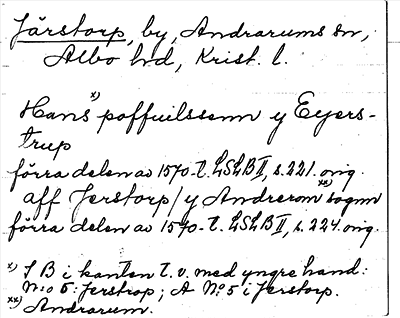 Järstorp, by, Andrarums sn,
Albo hd, Krist. l.
Hans x) poffuilssenn y Eyers-
trup
förra delen av 1570-t. LSLB II, s. 221. orig.
aff Jerstorp / y Andrerom xx) sognn
förra delen av 1570-t. LSLB II, s. 224. orig.
x) I B i kanten t.v. med yngre hand:
N:o 5: Jerstrop; A No 5 i Jerstorp.
xx) Andrarum.